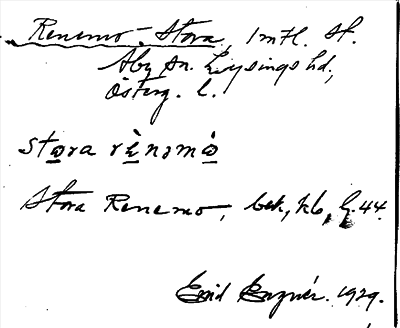 Renemo-Stora, 1 mtl. sk.
Åby sn. Lysings hd,
Österg. l.
stɷra rènəmɷ̀
Stora Renemo, bek, kb, G. 44.
Emid Enznér. 1929.